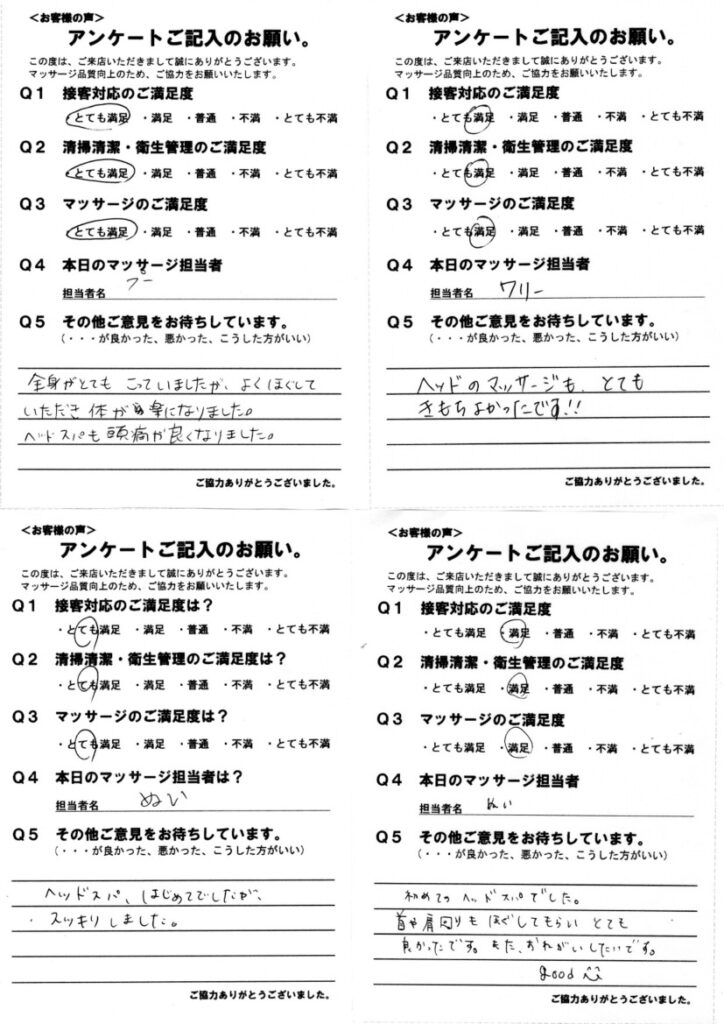 ＜お客様の声＞
アンケートご記入のお願い。
この度は、ご来店いただきまして誠にありがとうございます。
マッサージ品質向上のため、ご協力をお願いいたします。
Q1 接客対応のご満足度
・とても満足 ・満足 ・普通 ・不満 ・とても不満
Q2 清掃清潔・衛生管理のご満足度
・とても満足 ・満足 ・普通 ・不満 ・とても不満
Q3 マッサージのご満足度
・とても満足 ・満足 ・普通 ・不満 ・とても不満
Q4 本日のマッサージ担当者
担当者名 プー
Q5 その他ご意見をお待ちしています。
（・・・が良かった、悪かった、こうした方がいい）
全身がとても こっていましたが、よくほぐして
いただき 体が楽になりました。
ヘッドスパも頭痛が良くなりました。
ご協力ありがとうございました。
＜お客様の声＞
アンケートご記入のお願い。
この度は、ご来店いただきまして誠にありがとうございます。
マッサージ品質向上のため、ご協力をお願いいたします。
Q1 接客対応のご満足度
・とても満足 ・満足 ・普通 ・不満 ・とても不満
Q2 清掃清潔・衛生管理のご満足度
・とても満足 ・満足 ・普通 ・不満 ・とても不満
Q3 マッサージのご満足度
・とても満足 ・満足 ・普通 ・不満 ・とても不満
Q4 本日のマッサージ担当者
担当者名 ワリー
Q5 その他ご意見をお待ちしています。
（・・・が良かった、悪かった、こうした方がいい）
ヘッドのマッサージも、とても
きもちよかったです!!
ご協力ありがとうございました。
＜お客様の声＞
アンケートご記入のお願い。
この度は、ご来店いただきまして誠にありがとうございます。
マッサージ品質向上のため、ご協力をお願いいたします。
Q1 接客対応のご満足度は？
・とても満足 ・満足 ・普通 ・不満 ・とても不満
Q2 清掃清潔・衛生管理のご満足度は？
・とても満足 ・満足 ・普通 ・不満 ・とても不満
Q3 マッサージのご満足度は？
・とても満足 ・満足 ・普通 ・不満 ・とても不満
Q4 本日のマッサージ担当者は？
担当者名 ぬい
Q5 その他ご意見をお待ちしています。
（・・・が良かった、悪かった、こうした方がいい）
ヘッドスパ、はじめてでしたが、
スッキリしました。
ご協力ありがとうございました。
＜お客様の声＞
アンケートご記入のお願い。
この度は、ご来店いただきまして誠にありがとうございます。
マッサージ品質向上のため、ご協力をお願いいたします。
Q1 接客対応のご満足度
・とても満足 ・満足 ・普通 ・不満 ・とても不満
Q2 清掃清潔・衛生管理のご満足度
・とても満足 ・満足 ・普通 ・不満 ・とても不満
Q3 マッサージのご満足度
・とても満足 ・満足 ・普通 ・不満 ・とても不満
Q4 本日のマッサージ担当者
担当者名 ぬい
Q5 その他ご意見をお待ちしています。
（・・・が良かった、悪かった、こうした方がいい）
初めての ヘッドスパでした。
首や肩回りも ほぐしてもらい とても
良かったです。また、おねがいしたいです。
good
ご協力ありがとうございました。